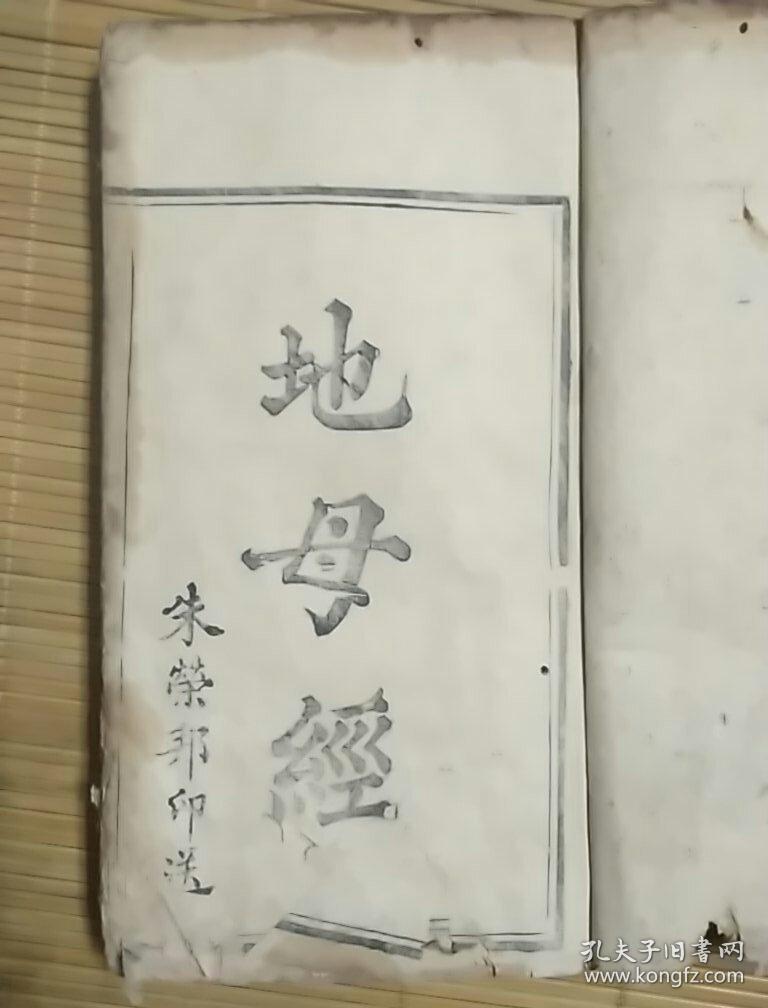 地母經
朱榮邦印送
孔夫子旧書网
www.kongfz.com